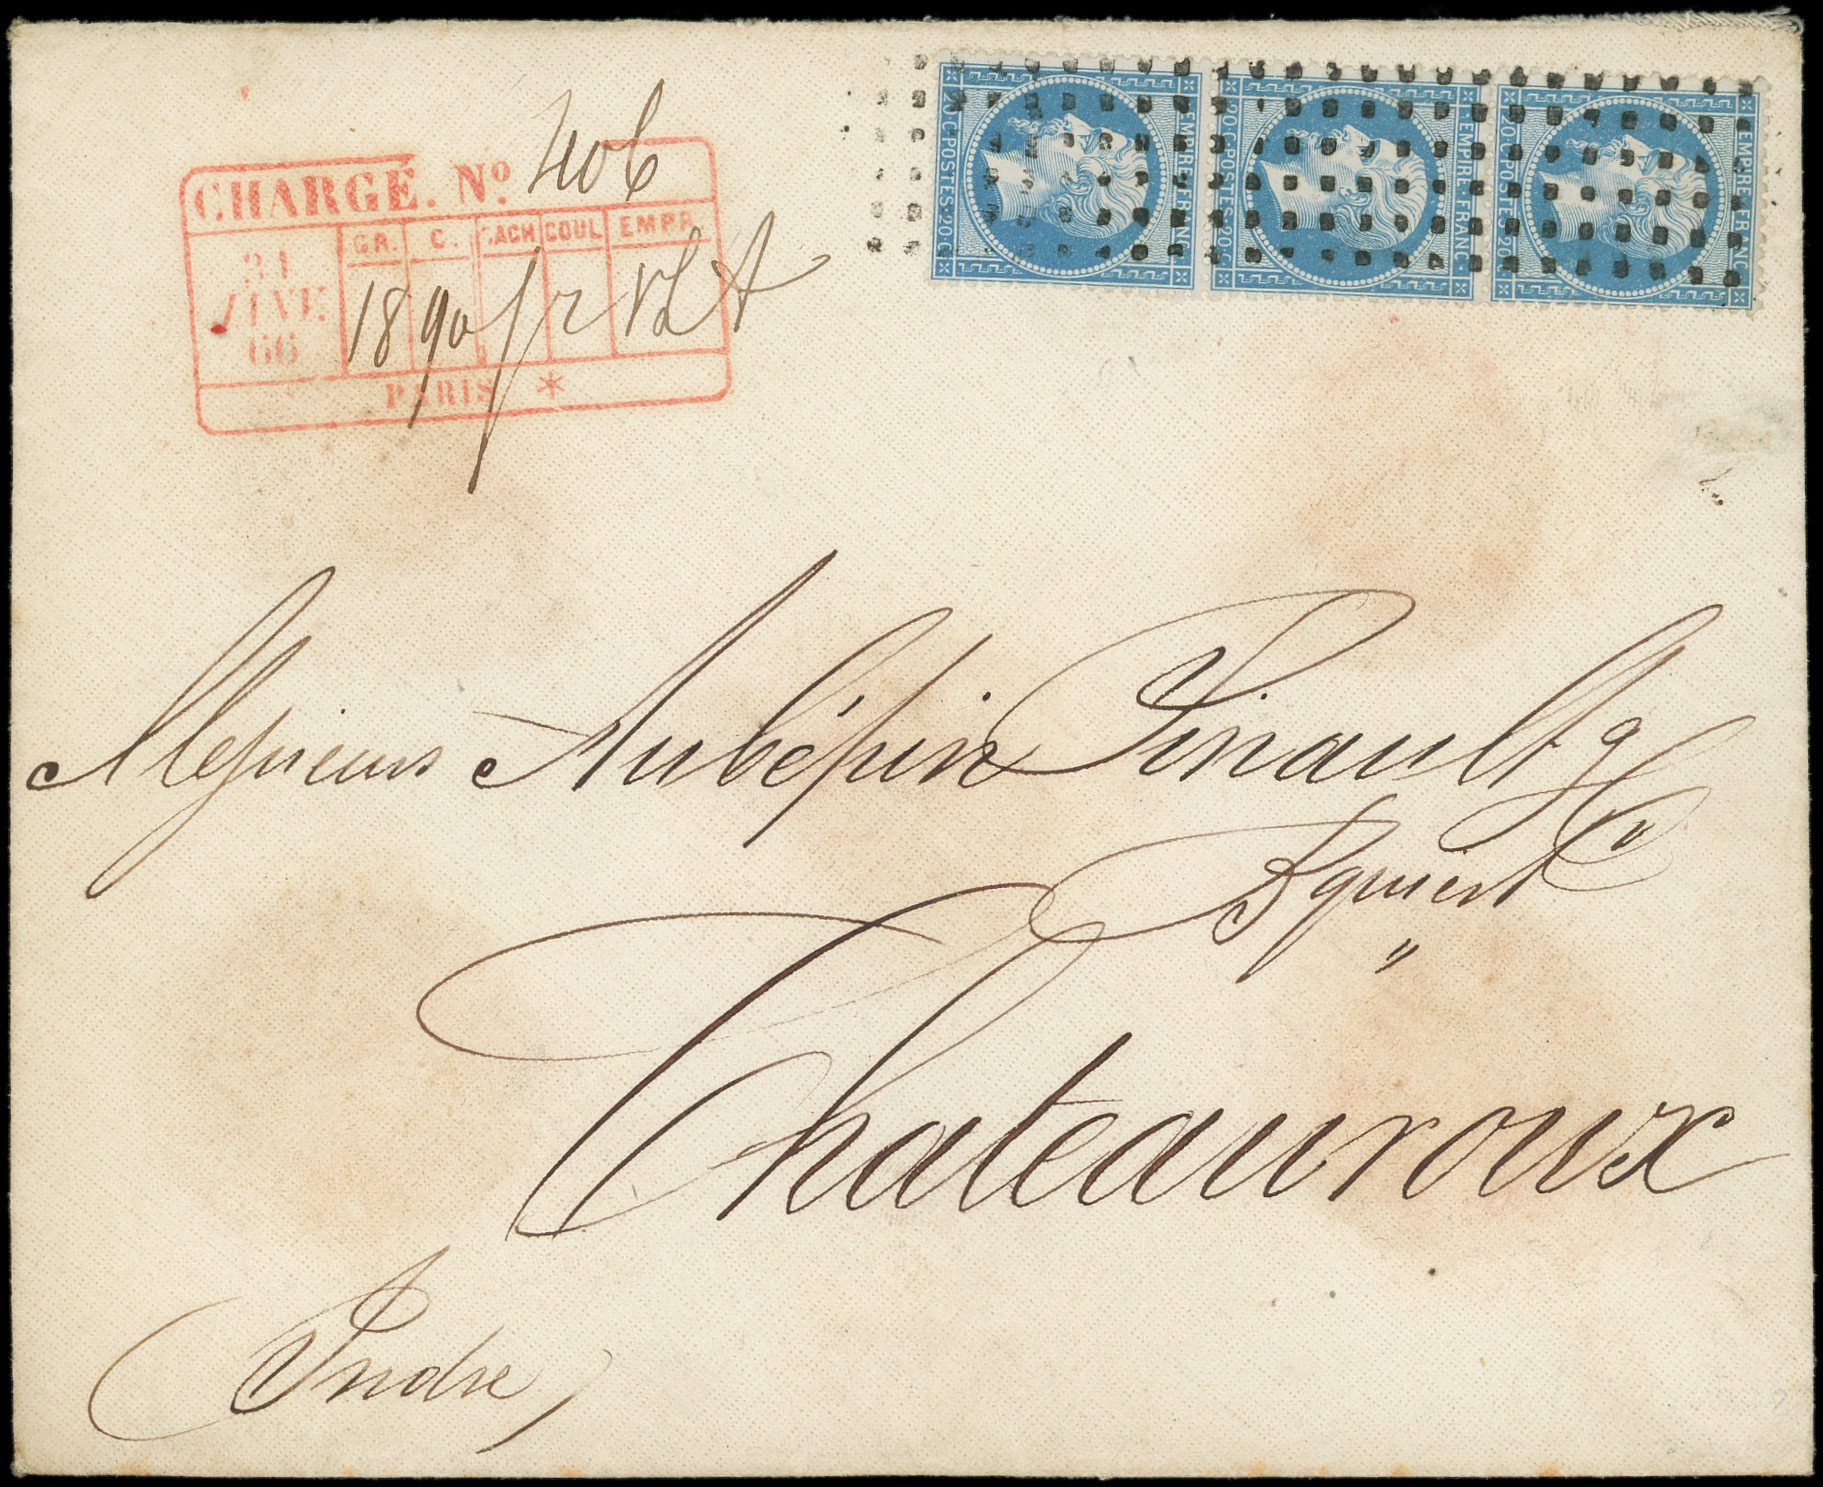 CHARGÉ. Nº 406
GR. C. CACH COUL EMPR.
31
JANV.
66
18 90 2
PARIS *
20 C POSTES 20 C EMPIRE FRANC
20 C POSTES 20 C EMPIRE FRANC
20 C POSTES 20 C EMPIRE FRANC
Messieurs Aubépin Pinault &
Chateauroux
Indre